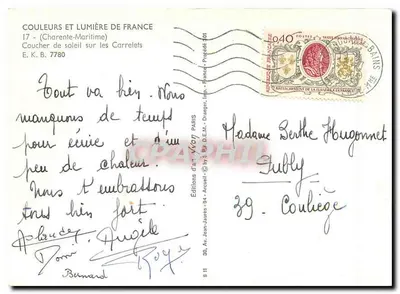 COULEURS ET LUMIÈRE DE FRANCE
17 - (Charente-Maritime)
Coucher de soleil sur les Carrelets
E. K. B. 7780
Tout va bien. Nous
manquons de temps
pour écrire et d'un
peu de chaleur.
Nous t'embrassons
tous bien fort.
Angèle
Bernard
Roger
Éditions d'art YVON PARIS
0,40
BAINS
Madame Berthe Hugonnet
Publy
39. Conliège